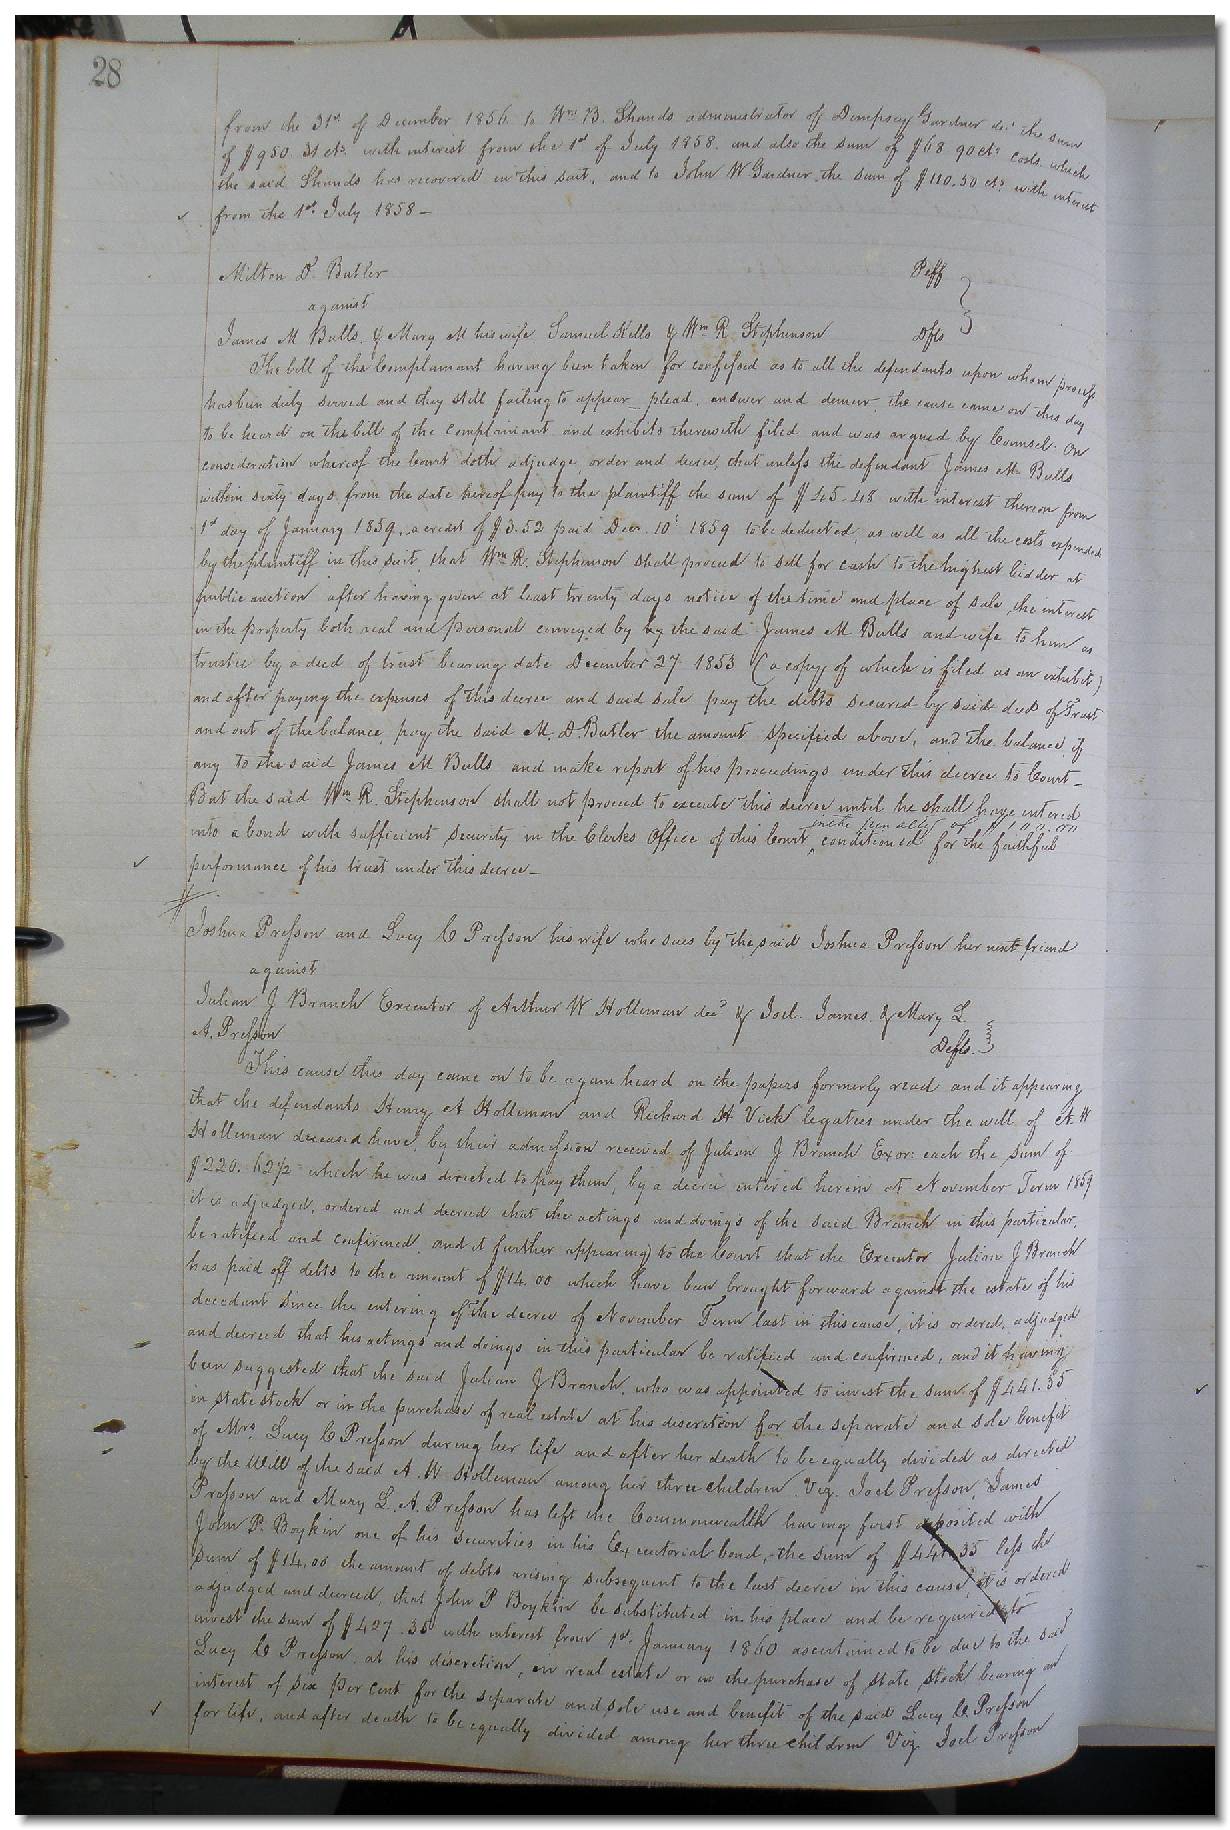 28
from the 31st of December 1856 to Wm B. Shands administrator of Dempsey Gardner decd the sum
of $950 31 cts with interest from the 1st of July 1858. and also the sum of $68 90 cts costs which
the said Shands has recovered in this suit, and to John W Gardner the sum of $110.50 cts with interest
from the 1st July 1858 –
Milton D. Butler Plff
against
James M Bulls, & Mary M his wife Samuel Kells & Wm R. Stephenson Dfts
The bill of the Complainant having been taken for confessed as to all the defendants upon whom process
has been duly served and they still failing to appear plead, answer and demur, the cause came on this day
to be heard on the bill of the complainant and exhibits therewith filed and was argued by Counsel. On
consideration whereof the Court doth adjudge, order and decree, that unless the defendant James M. Bulls
within sixty days from the date hereof pay to the plaintiff the sum of $45.48 with interest thereon from
1st day of January 1859, a credit of $3.52 paid Decr 10th 1859 to be deducted, as well as all the costs expended
by the plaintiff in this suit, that Wm R. Stephenson shall proceed to sell for cash to the highest bidder at
public auction after having given at least twenty days notice of the time and place of sale, the interest
in the property both real and personal conveyed by by the said James M Bulls and wife to him as
trustee by a deed of trust bearing date December 27 1853 (a copy of which is filed as an exhibit)
and after paying the expenses of this decree and said sale pay the debts secured by said deed of Trust
and out of the balance, pay the said M. D. Butler the amount specified above, and the balance, if
any to the said James M Bulls and make report of his proceedings under this decree to Court –
But the said Wm R. Stephenson shall not proceed to execute this decree until he shall have entered
in the penalty of
into a bond with sufficient security in the Clerks Office of this Court conditioned for the faithful
performance of his trust under this decree –
Joshua Presson and Lucy C Presson his wife who sues by the said Joshua Presson her next friend
against
Julian J Branch Executor of Arthur W Holleman decd & Joel. James. & Mary L.
A. Presson Defts.
This cause this day came on to be again heard on the papers formerly read and it appearing
that the defendants Henry A Holleman and Richard H Vick legatees under the will of A. W
Holleman deceased have, by their admission received of Julian J Branch Exor. each the sum of
$220. 62½ which he was directed to pay them, by a decree entered herein at November Term 1859
it is adjudged, ordered and decreed that the actings and doings of the said Branch in this particular,
be ratified and confirmed, and it further appearing to the Court that the Executor Julian J Branch
has paid off debts to the amount of $14.00 which have been brought forward against the estate of his
decedent since the entering of the decree of November Term last in this cause, it is ordered, adjudged
and decreed that his actings and doings in this particular be ratified and confirmed, and it having
been suggested that the said Julian J Branch, who was appointed to invest the sum of $441.35
in state stock or in the purchase of real estate at his discretion for the separate and sole benefit
of Mrs. Lucy C Presson during her life and after her death to be equally divided as directed
by the Will of the said A. W Holleman among her three children Viz. Joel Presson, James
Presson and Mary L. A. Presson has left the Commonwealth having first deposited with
John P. Boykin one of his securities in his Executorial bond, the sum of $441.35 less the
sum of $14.00 the amount of debts arising subsequent to the last decree in this cause it is ordered
adjudged and decreed, that John P Boykin be substituted in his place and be required to
invest the sum of $427.35 with interest from 1st January 1860 ascertained to be due to the said
Lucy C Presson at his discretion, in real estate or in the purchase of state stock bearing an
interest of six per cent for the separate and sole use and benefit of the said Lucy C. Presson
for life, and after death to be equally divided among her three children Viz. Joel Presson